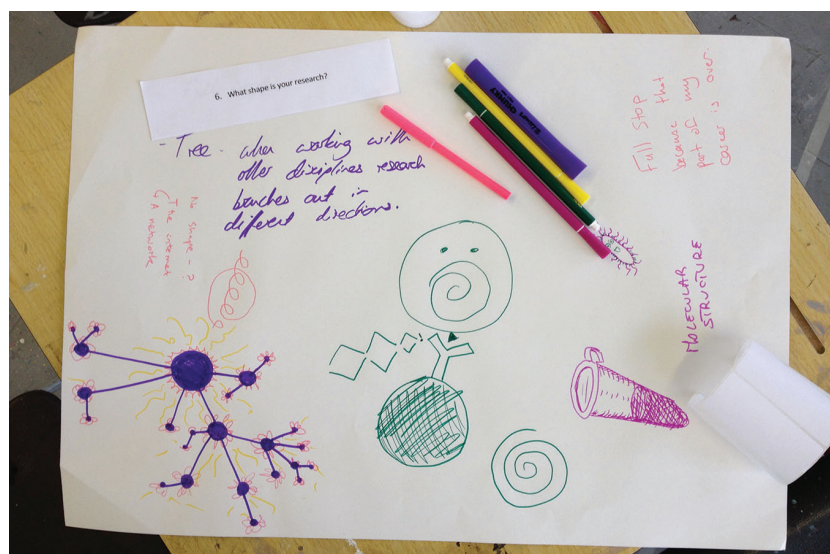 6. What shape is your research?
- Tree - when working with
other disciplines research
branches out in
different directions.
No shape - ?
The internet
A network
Full Stop
because that
part of my
career is over.
MOLECULAR
STRUCTURE